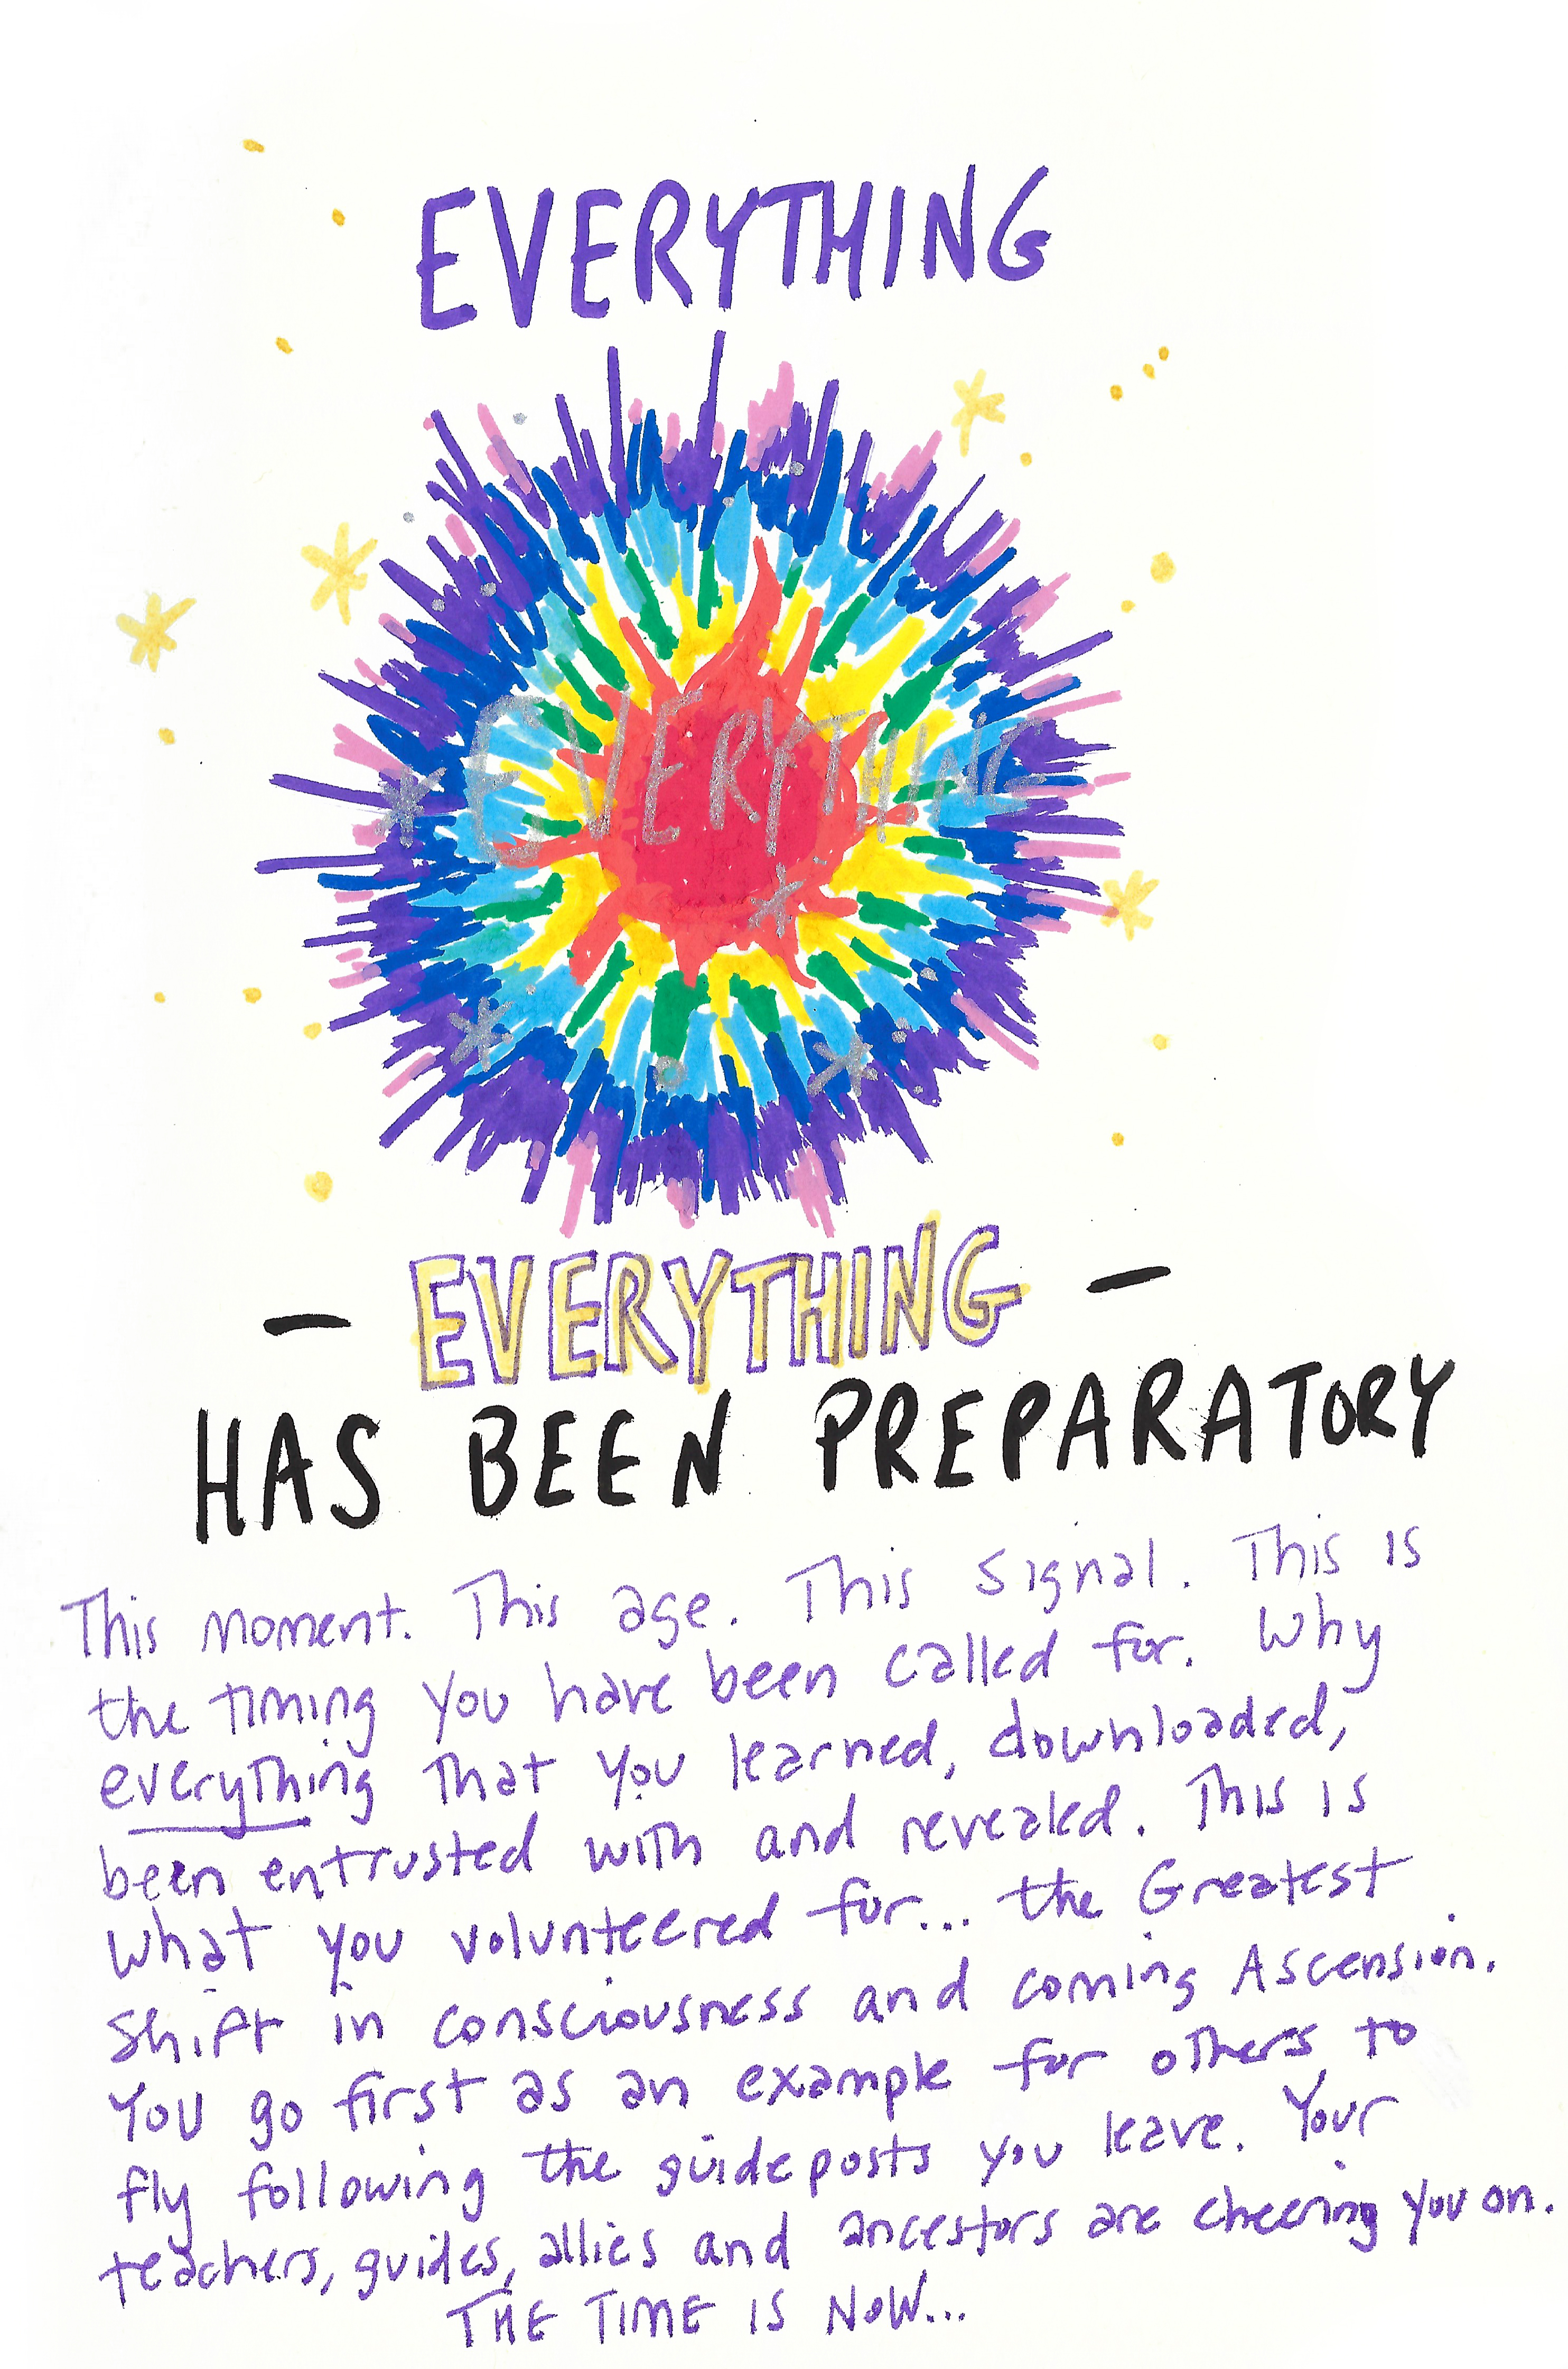 EVERYTHING
EVERYTHING
- EVERYTHING -
HAS BEEN PREPARATORY
This moment. This age. This signal. This is
the timing you have been called for. Why
everything that you learned, downloaded,
been entrusted with and revealed. This is
what you volunteered for... the Greatest
Shift in consciousness and coming Ascension.
You go first as an example for others to
fly following the guideposts you leave. Your
teachers, guides, allies and ancestors are cheering you on.
THE TIME IS NOW...